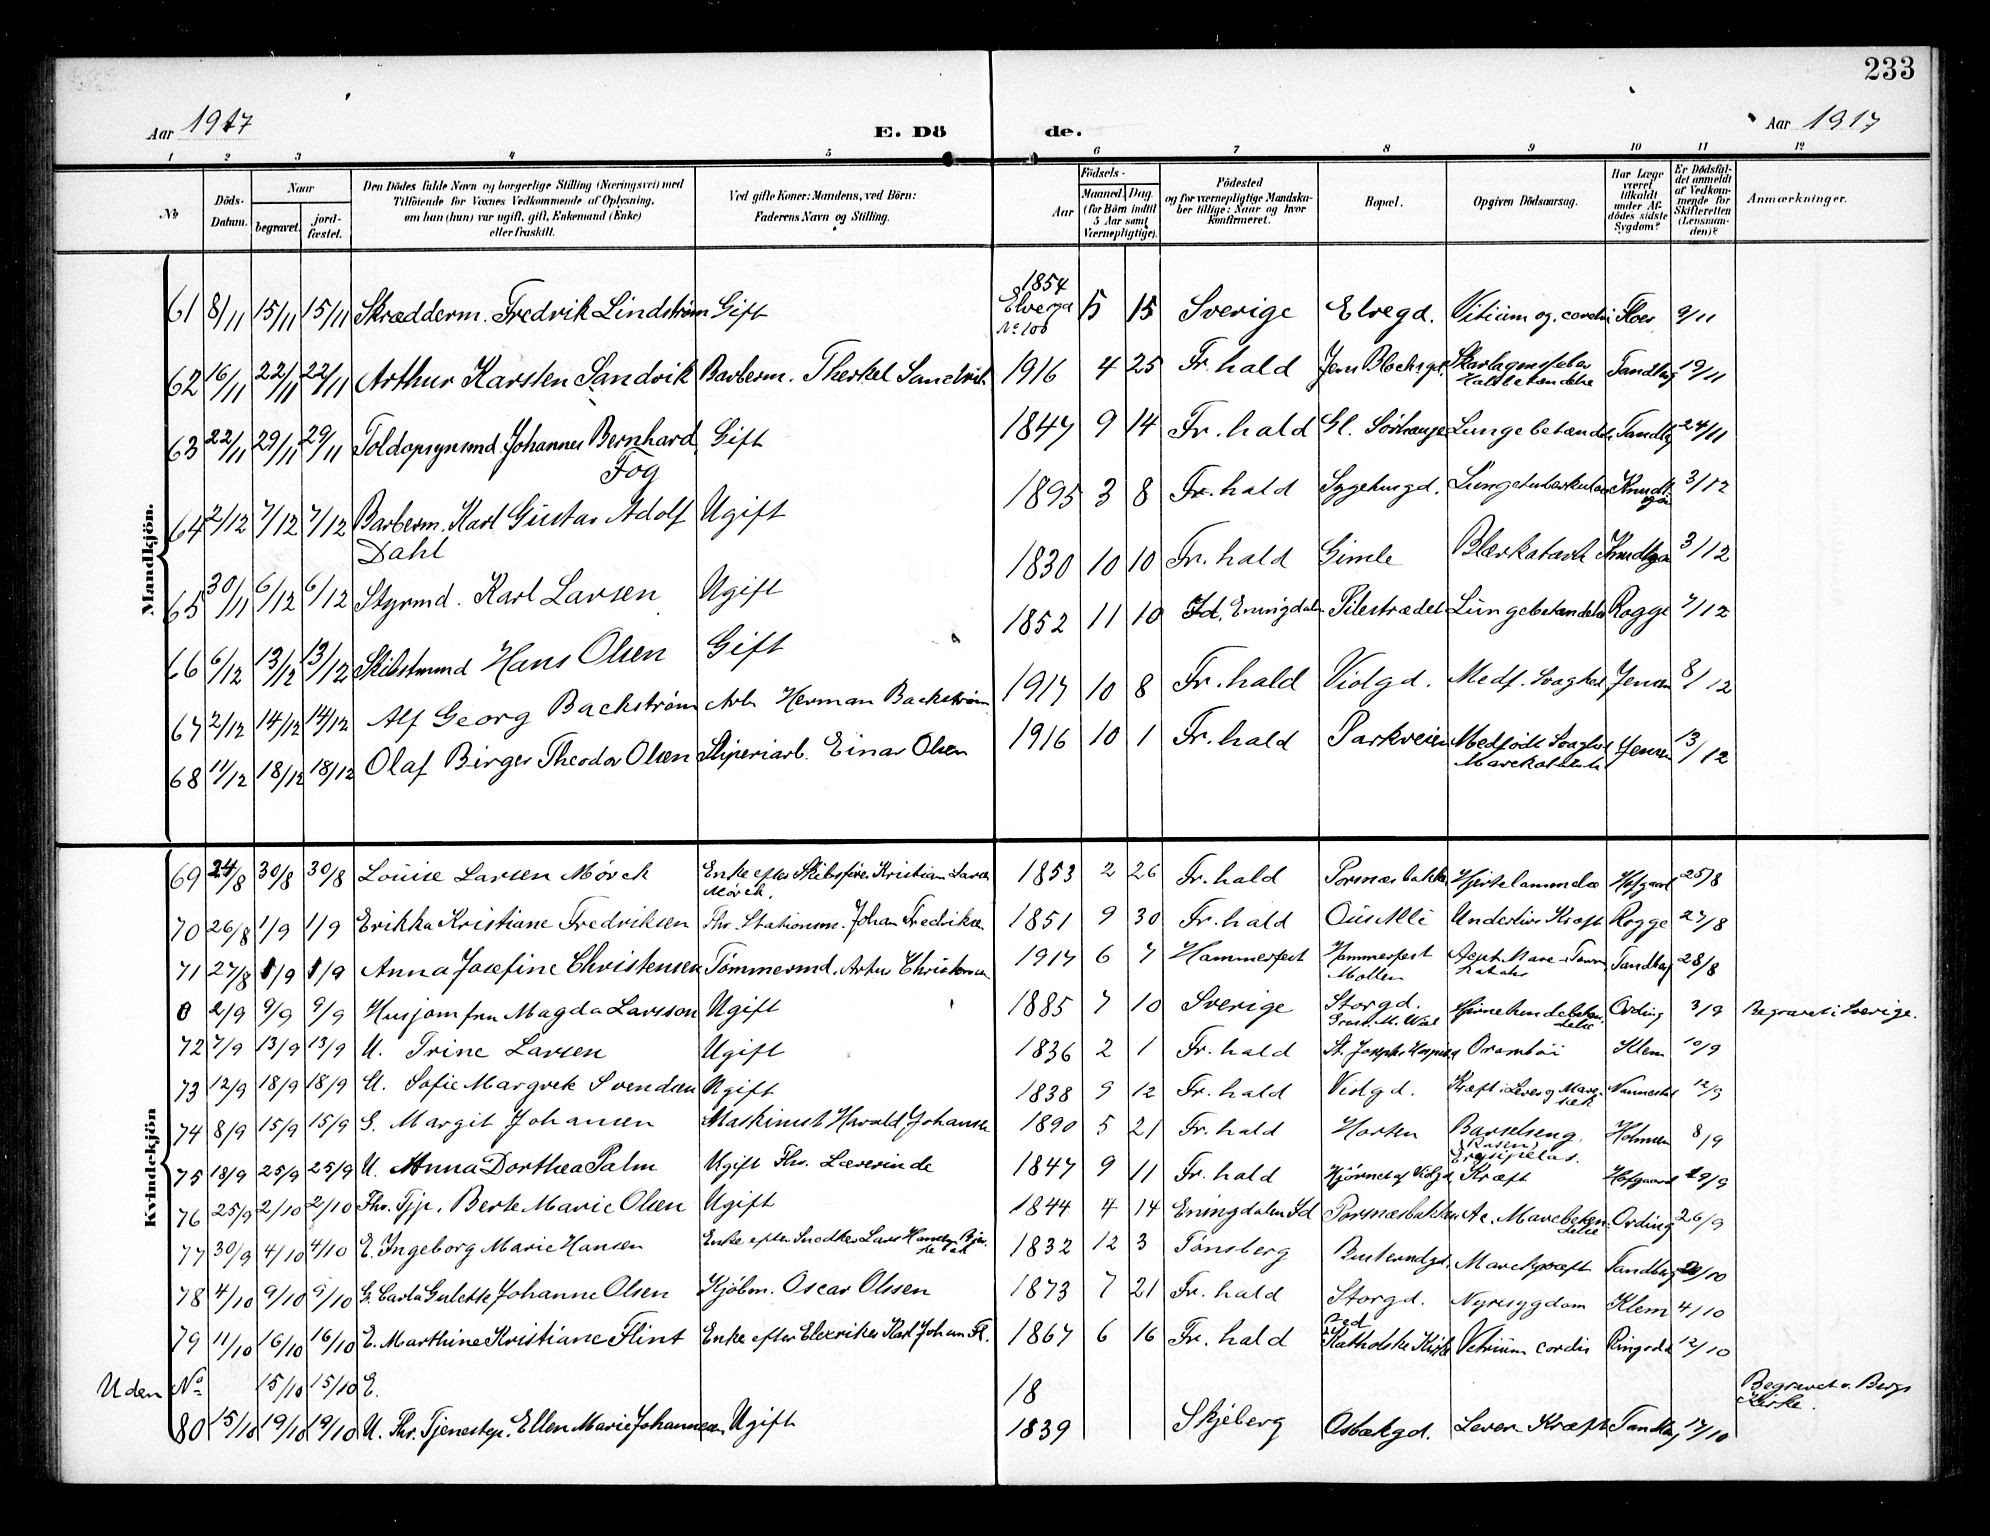 233
Aar 1917 E. Döde. Aar 1917
1 2 3 4 5 6 7 8 9 10 11 12
No
Döds-Datum.
Naar
begravet.
jordfæstet.
Den Dödes fulde Navn og borgerlige Stilling (Næringsvei) med
Tilföiende for Voxnes Vedkommende af Oplysning,
om han (hun) var ugift, gift, Enkemand (Enke)
eller fraskilt.
Ved gifte Koner: Mandens, ved Börn:
Faderens Navn og Stilling.
Födsels-
Aar
Maaned. Dag.
(for Börn indtil
5 Aar samt
Værnepligtige).
Födested
og for værnepligtige Mandskaber tillige: Naar og hvor
konfirmeret.
Bopæl.
Opgiven Dödsaarsag.
Har Læge
været
tilkaldt
under Afdödes sidste
Sygdom?
Er Dödsfaldet anmeldt
af Vedkommende for
Skifteretten
(Lensmanden)?
Anmærkninger.
Mandkjön.
61 8/11 15/11 15/11 Skrædderm. Fredrik Lindstrøm Gift 1854 5 15 Sverige Elvegd. Vitium og. cordis 9/11
No 100
62 16/11 22/11 22/11 Arthur Karsten Sandvik Barberm. Therkel Sandvik 1916 4 25 Fr.hald Jens Blochsgd. Skarlagensfeber Tandberg 19/11
Halsbetændelse
63 22/11 29/11 29/11 Toldopsynsmd. Johannes Bernhard Gift 1847 9 14 Fr.hald Gl. Lungebetændels Tandbg 24/11
Fog
64 2/12 7/12 7/12 Barberm. Karl Gustav Adolf Ugift 1895 3 8 Fr.hald Sygehusgd. Lungetuberkulose 3/12
Dahl
65 30/11 6/12 6/12 Styrmd. Karl Larsen Ugift 1830 10 10 Fr.hald Gimle Blærkatarh 3/12
66 6/12 13/12 13/12 Hans Olsen Gift 1852 11 10 Id. Eningdalen Pilestrædet Lungebetændelse Rogge 7/12
67 2/12 14/12 14/12 Alf Georg Backstrøm Arb. Herman Backstrøm 1917 10 8 Fr.hald Violgd. Medf. Svaghed Jensen 8/12
68 11/12 18/12 18/12 Olaf Birger Theodor Olsen Sliperiarb. Einar Olsen 1916 10 1 Fr.hald Parkveien Medfödt Svaghed Jensen 13/12
Kvindekjön
69 24/8 30/8 30/8 Louise Larsen Mørck Enke efter Skibsfører Kristian Larsen 1853 2 26 Fr.hald Hjertelammelse Hofgaard 25/8
Mørck.
70 26/8 1/9 1/9 Erikka Kristiane Fredriksen Fhv. Stationsm. Johan Fredriksen 1851 9 30 Fr.hald Underlivs Kræft Rogge 27/8
71 27/8 1/9 1/9 Anna Josefine Christensen Tömmermd. Artur Christensen 1917 6 7 Hammerfest Hammerfest Akut Mave-Tarm Tandbg 28/8
Mollen katahr
0 2/9 9/9 9/9 Husjomfru Magda Larsson Ugift 1885 7 10 Sverige Storgd. Hjernehindebetændelse Ording 3/9 Begravet i Sverige.
72 7/9 13/9 13/9 U. Trine Larsen Ugift 1836 2 1 Fr.hald St. Josephs Hospital Klem 10/9
73 12/9 18/9 18/9 U. Sofie Margrete Svendsen Ugift 1838 9 12 Fr.hald Violgd. Kræft i Lever og Mavesæk 12/9
74 8/9 15/9 15/9 G. Margit Johansen Maskinist Harald Johansen 1890 5 21 Fr.hald Horten Barselseng. Holmsen 8/9
(Rosen)
Erysipelas.
75 18/9 25/9 25/9 U. Anna Dorthea Palm Ugift Fhv. Lærerinde 1847 9 11 Fr.hald Hjørnet af Violgd Kræft Hofgaard 19/9
76 25/9 2/10 2/10 Fhv. Tjp. Berte Marie Olsen Ugift 1844 4 14 Eningdalen Id Ac. Mavebetændelse Ording 26/9
77 30/9 4/10 4/10 E. Ingeborg Marie Hansen Enke efter Snedker Lars Hansen 1832 12 3 Tønsberg Mavekræft Tandbg /10
78 4/10 9/10 9/10 G. Carla Gulette Johanne Olsen Kjøbm. Oscar Olssen 1873 7 21 Fr.hald Storgd. Nyresygdom Klem 4/10
79 11/10 16/10 16/10 E. Marthine Kristiane Flint Enke efter Karl Johan Fl. 1867 6 16 Fr.hald Ved Katholske Kirke Vitium cordis 12/10
Uden No 15/10 15/10 E. 18 Begravet v. Bergs
Kirke.
80 15/10 19/10 19/10 U. Fhv. Tjenestep. Ellen Marie Johannesen Ugift 1839 Skjeberg Osbækgd. Lever Kræft Tandbg 17/10